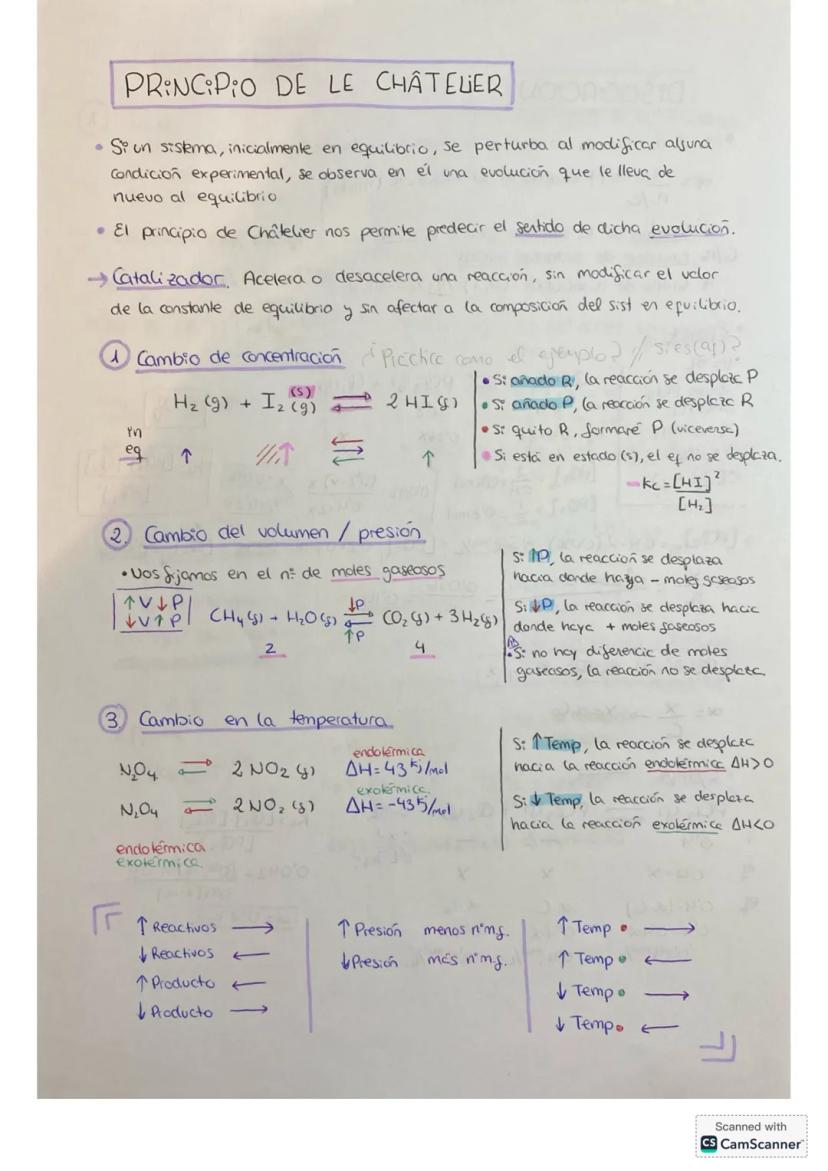 PRINCIPIO DE LE CHÂTELIER
• Si un sistema, inicialmente en equilibrio, se perturba al modificar alguna
condición experimental, se observa en él una evolución que le lleva de
nuevo al equilibrio
• El principio de Châtelier nos permite predecir el sentido de dicha evolución.
→ Catalizador. Acelera o desacelera una reacción, sin modificar el valor
de la constante de equilibrio y sin afectar a la composición del sist en equilibrio.
① Cambio de concentración ¿ como el ejemplo? // si es (aq)?
(s)
H₂ (g) + I₂ (g) ⇌ 2 HI (g)
en
eq ↑ ↑ ⇌ ↑
• Si añado R, la reacción se desplaza P
• Si añado P, la reacción se desplaza R
• Si quito R, formaré P (viceversa)
• Si está en estado (s), el eq no se desplaza.
- Kc = [HI]²
[H₂]
② Cambio del volumen / presión
• Nos fijamos en el nº de moles gaseosos
↑V ↓P
↓V ↑P
↓P
CH₄ (g) + H₂O (g) ⇌ CO₂ (g) + 3H₂ (g)
↑P
2 4
Si ↑P, la reacción se desplaza
hacia donde haya - moles gaseosos
Si ↓P, la reacción se desplaza hacia
donde haya + moles gaseosos
• Si no hay diferencia de moles
gaseosos, la reacción no se desplaza.
③ Cambio en la temperatura
endotérmica
N₂O₄ ⇌ 2 NO₂ (g) ΔH = 43 kJ/mol
exotérmica
N₂O₄ ⇌ 2 NO₂ (g) ΔH = -43 kJ/mol
endotérmica
exotérmica
Si ↑ Temp, la reacción se desplaza
hacia la reacción endotérmica ΔH>0
Si ↓ Temp, la reacción se desplaza
hacia la reacción exotérmica ΔH<0
↑ Reactivos →
↓ Reactivos ←
↑ Producto ←
↓ Producto →
↑ Presión menos nºm.g.
↓ Presión más nºm.g.
↑ Temp • →
↑ Temp • ←
↓ Temp • →
↓ Temp • ←
Scanned with
CS CamScanner